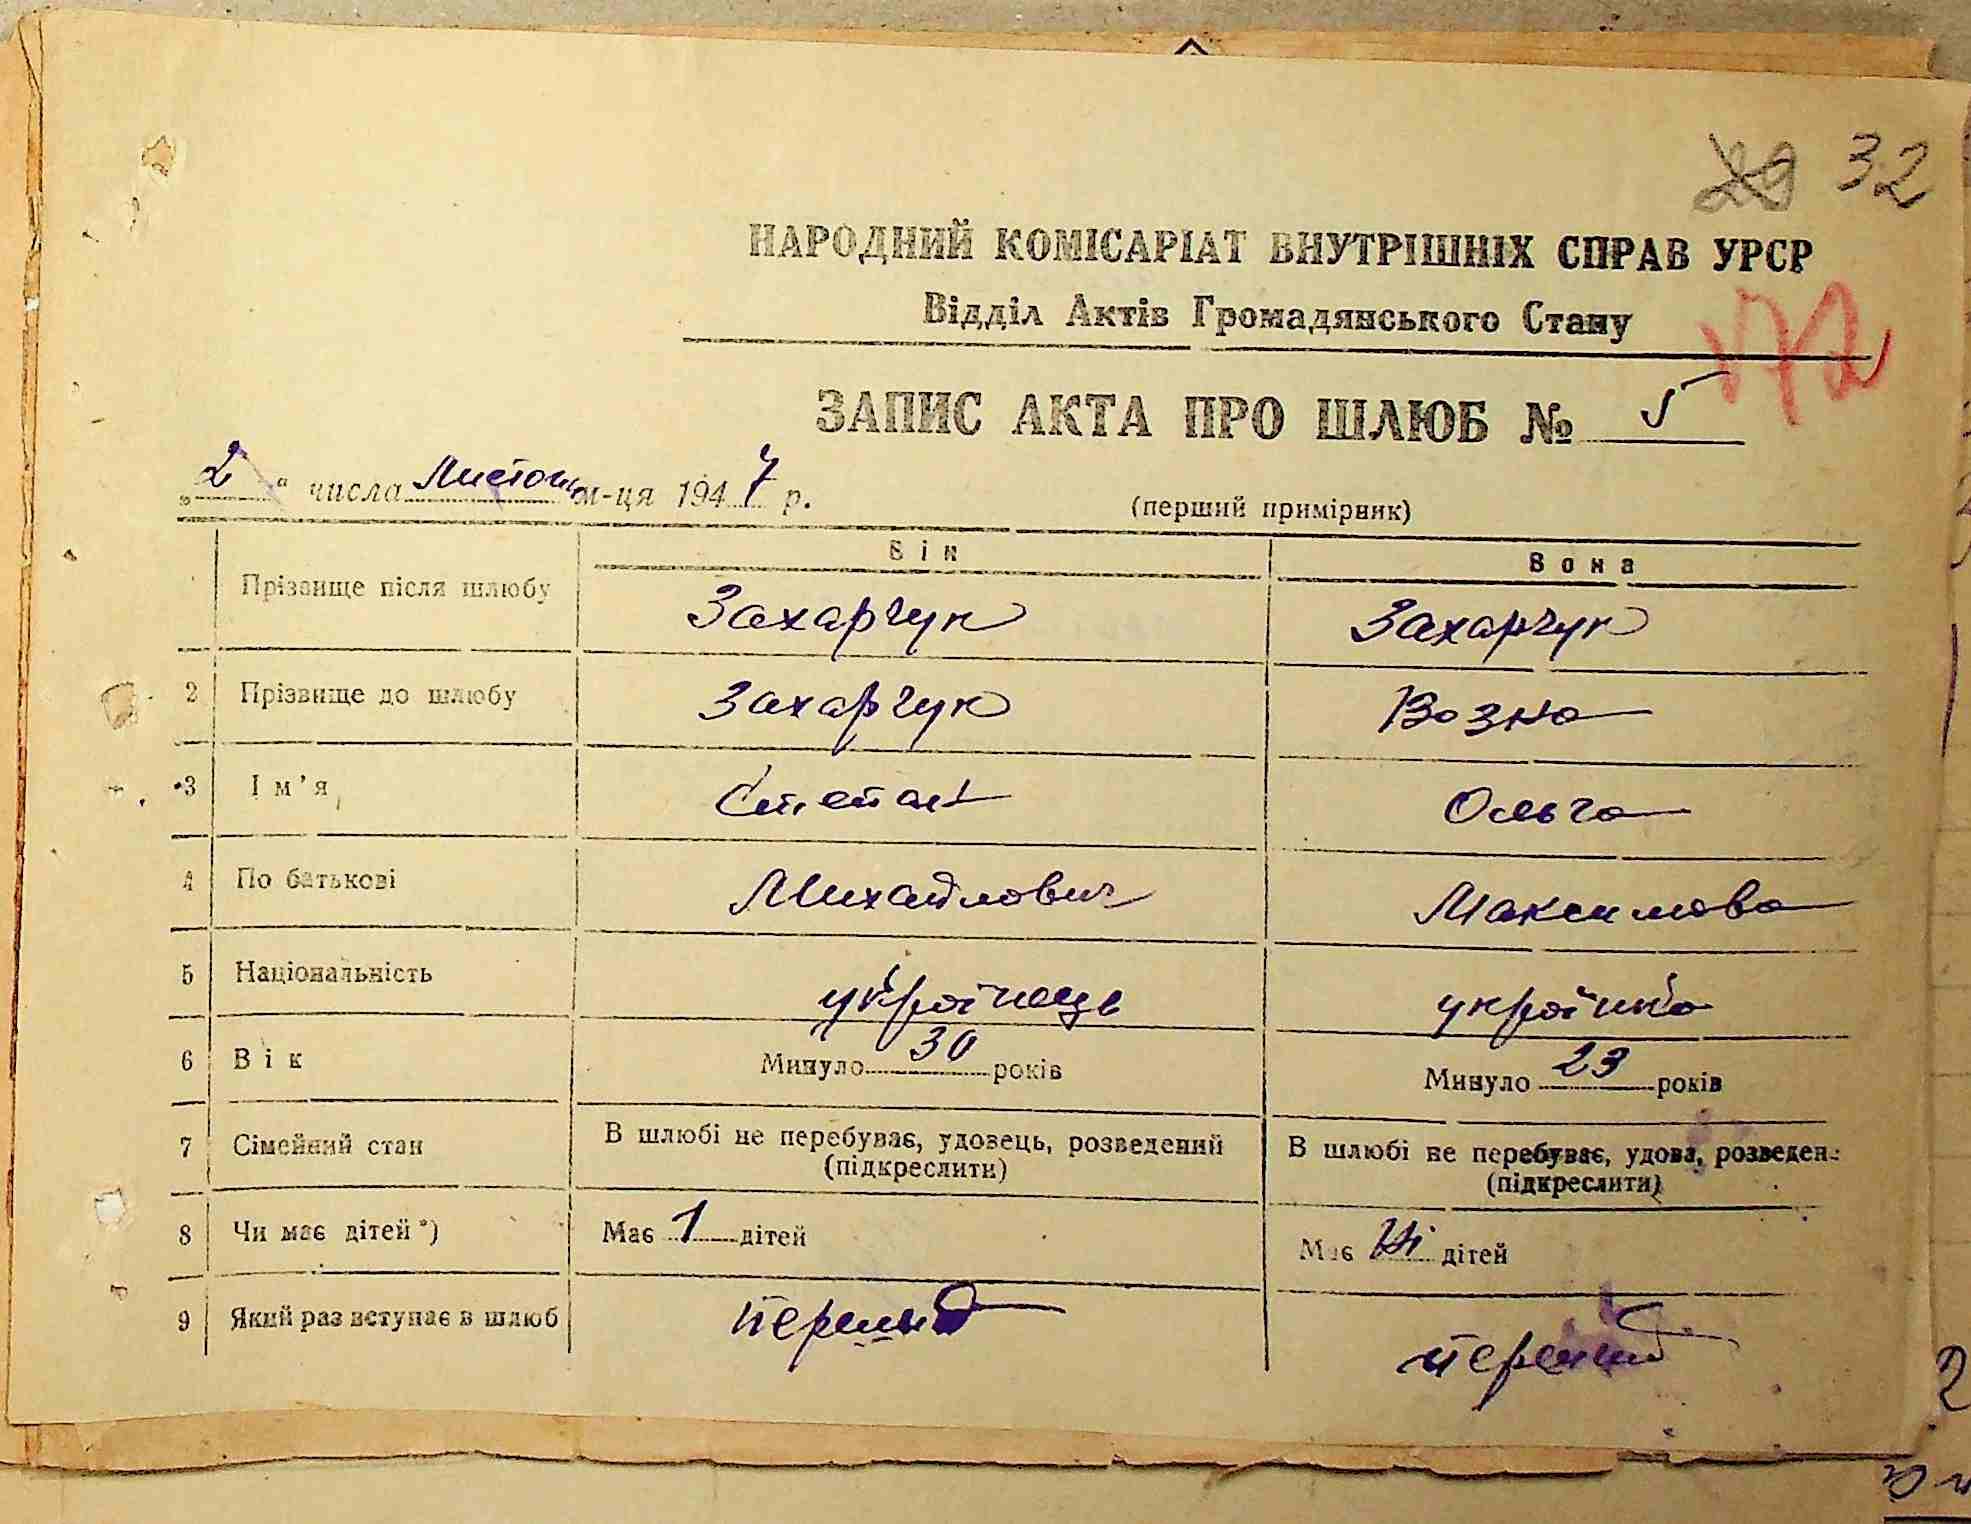 29 32
НАРОДНИЙ КОМІСАРІАТ ВНУТРІШНІХ СПРАВ УРСР
Відділ Актів Громадянського Стану
ЗАПИС АКТА ПРО ШЛЮБ № 5
„2“ числа Листоп м-ця 1947 р.
(перший примірник)
Він Вона
Прізвище після шлюбу Захарчук Захарчук
2 Прізвище до шлюбу Захарчук Возна
3 Ім'я Степан Ольга
4 По батькові Михайлович Максимовна
5 Національність українець українка
6 Вік Минуло 30 років Минуло 23 років
7 Сімейний стан В шлюбі не перебуває, удовець, розведений В шлюбі не перебуває, удова, розведен
(підкреслити) (підкреслити)
8 Чи має дітей *) Має 1 дітей Має Ні дітей
9 Який раз вступає в шлюб перший перший